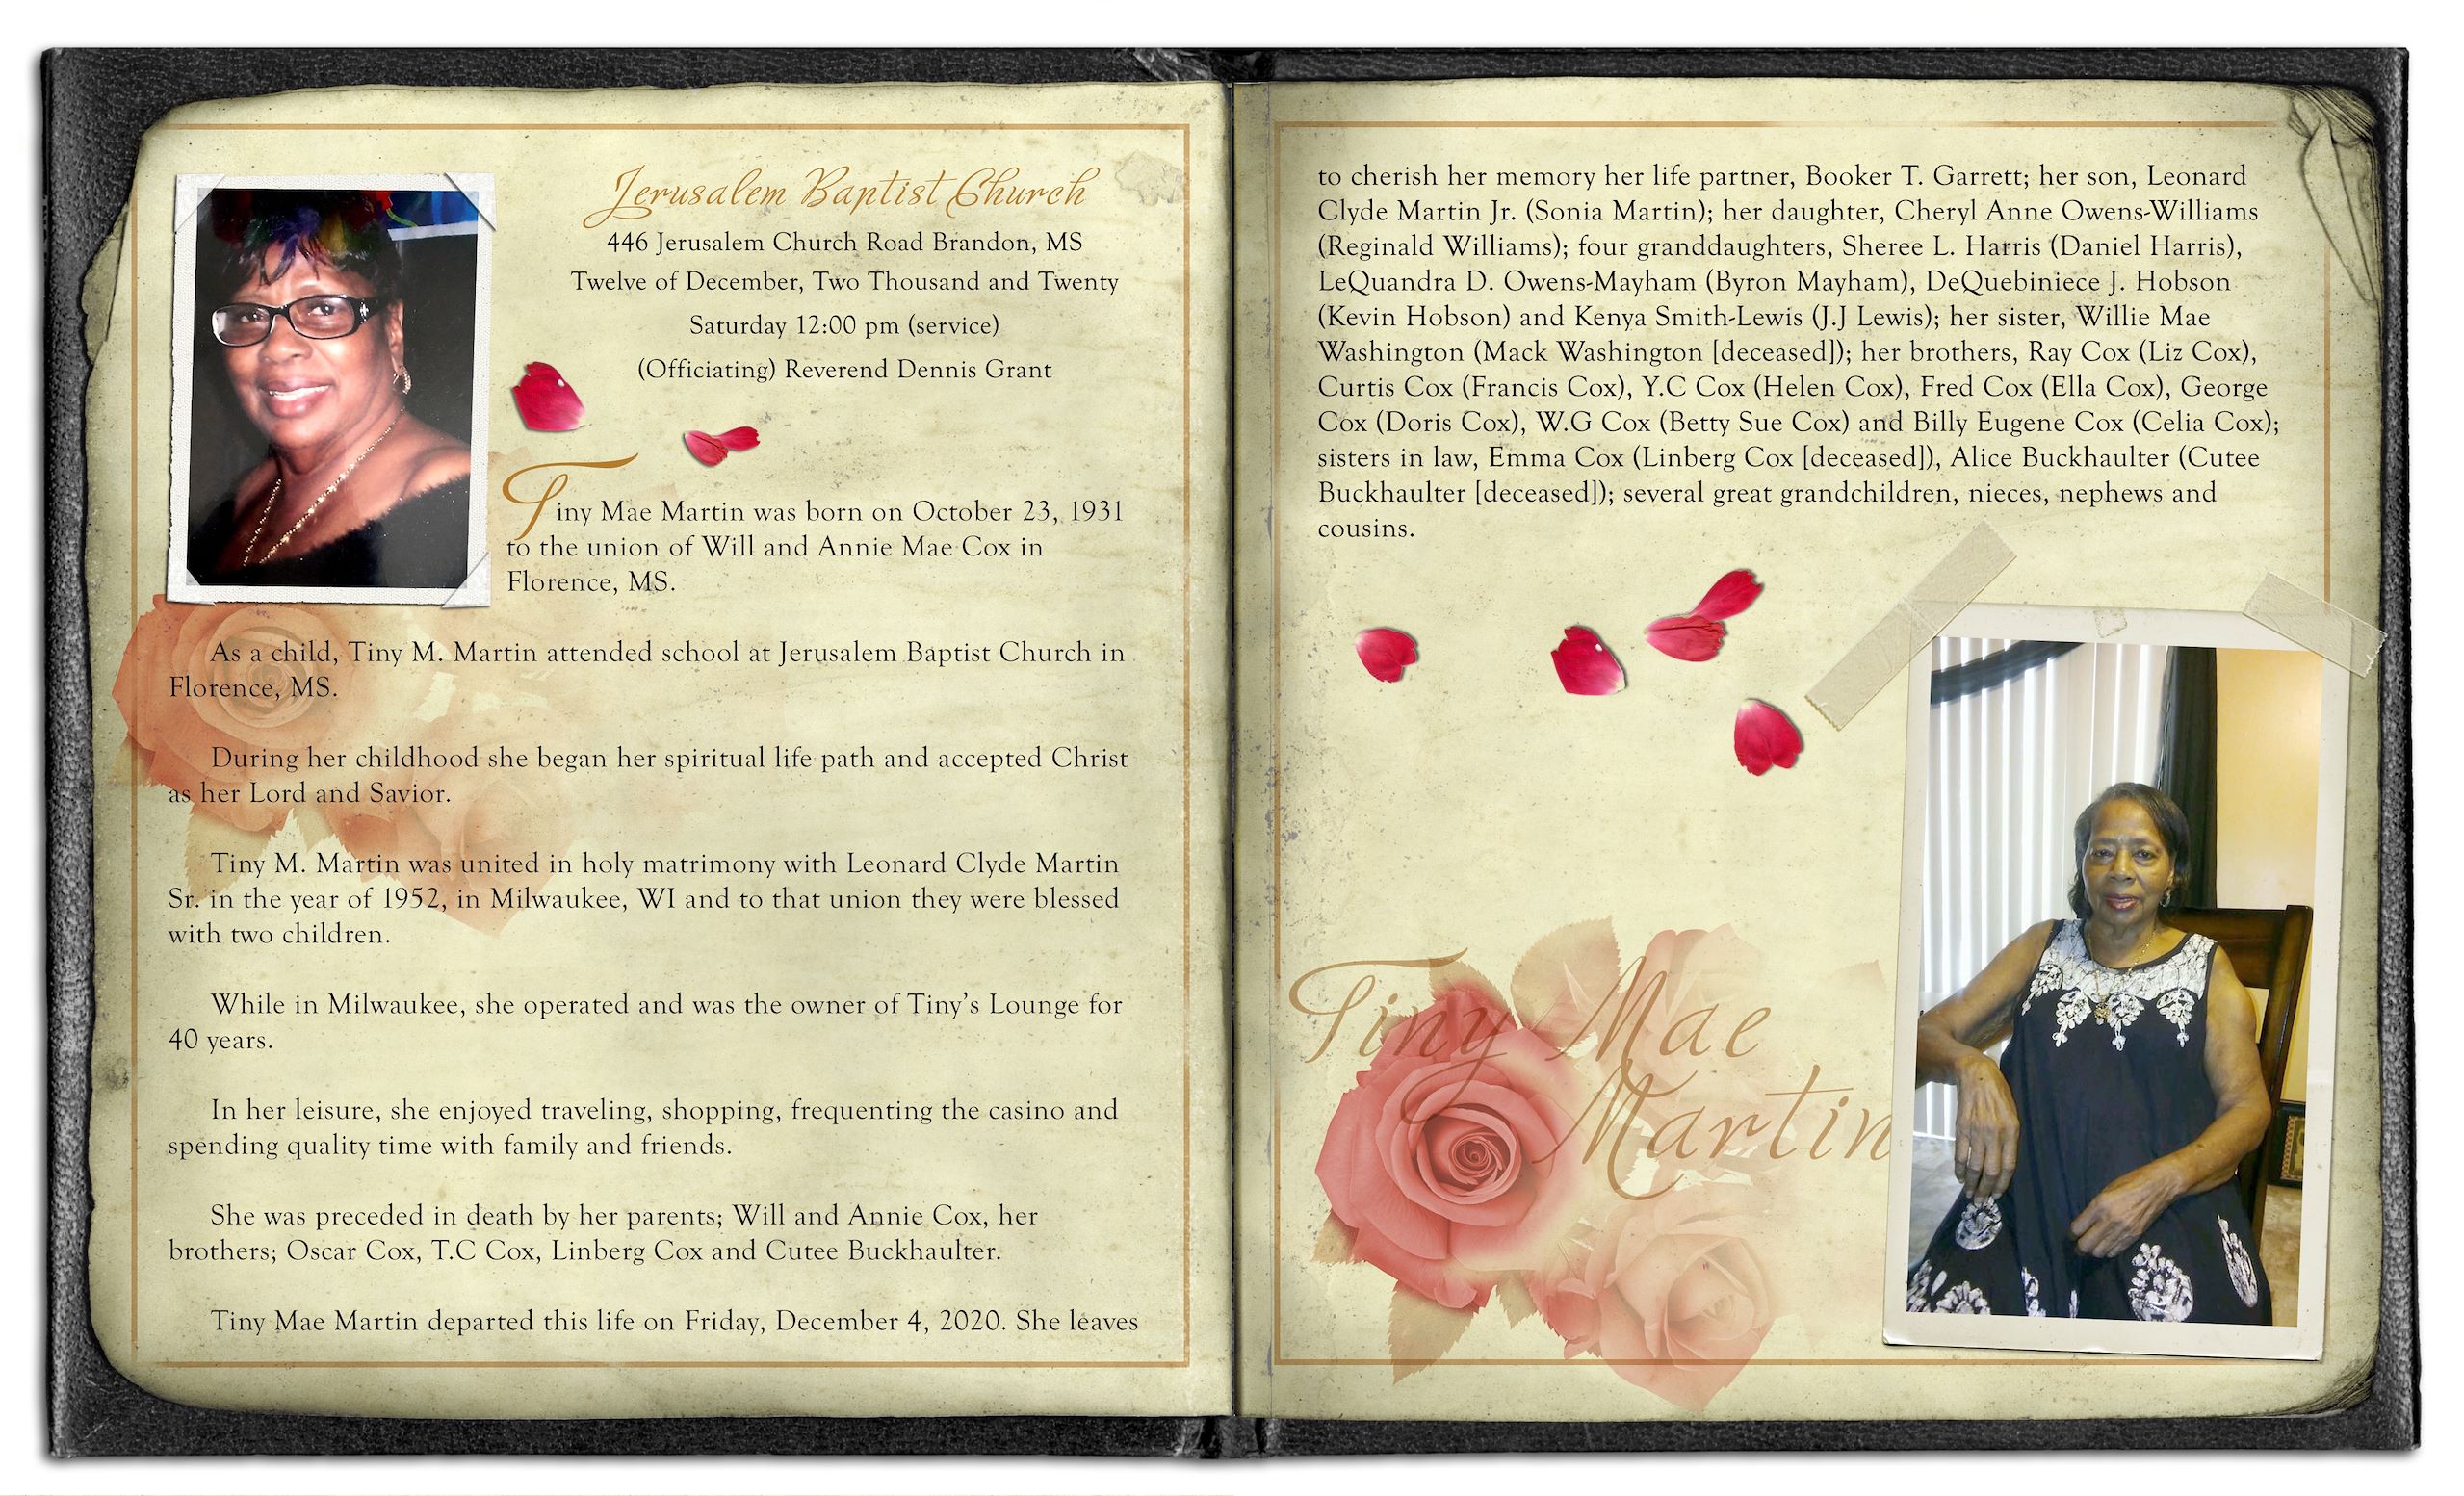 Jerusalem Baptist Church
446 Jerusalem Church Road Brandon, MS
Twelve of December, Two Thousand and Twenty
Saturday 12:00 pm (service)
(Officiating) Reverend Dennis Grant
Tiny Mae Martin was born on October 23, 1931
to the union of Will and Annie Mae Cox in
Florence, MS.
As a child, Tiny M. Martin attended school at Jerusalem Baptist Church in
Florence, MS.
During her childhood she began her spiritual life path and accepted Christ
as her Lord and Savior.
Tiny M. Martin was united in holy matrimony with Leonard Clyde Martin
Sr. in the year of 1952, in Milwaukee, WI and to that union they were blessed
with two children.
While in Milwaukee, she operated and was the owner of Tiny's Lounge for
40 years.
In her leisure, she enjoyed traveling, shopping, frequenting the casino and
spending quality time with family and friends.
She was preceded in death by her parents; Will and Annie Cox, her
brothers; Oscar Cox, T.C Cox, Linberg Cox and Cutee Buckhaulter.
Tiny Mae Martin departed this life on Friday, December 4, 2020. She leaves
to cherish her memory her life partner, Booker T. Garrett; her son, Leonard
Clyde Martin Jr. (Sonia Martin); her daughter, Cheryl Anne Owens-Williams
(Reginald Williams); four granddaughters, Sheree L. Harris (Daniel Harris),
LeQuandra D. Owens-Mayham (Byron Mayham), DeQuebiniece J. Hobson
(Kevin Hobson) and Kenya Smith-Lewis (J.J Lewis); her sister, Willie Mae
Washington (Mack Washington [deceased]); her brothers, Ray Cox (Liz Cox),
Curtis Cox (Francis Cox), Y.C Cox (Helen Cox), Fred Cox (Ella Cox), George
Cox (Doris Cox), W.G Cox (Betty Sue Cox) and Billy Eugene Cox (Celia Cox);
sisters in law, Emma Cox (Linberg Cox [deceased]), Alice Buckhaulter (Cutee
Buckhaulter [deceased]); several great grandchildren, nieces, nephews and
cousins.
Tiny Mae
Martin